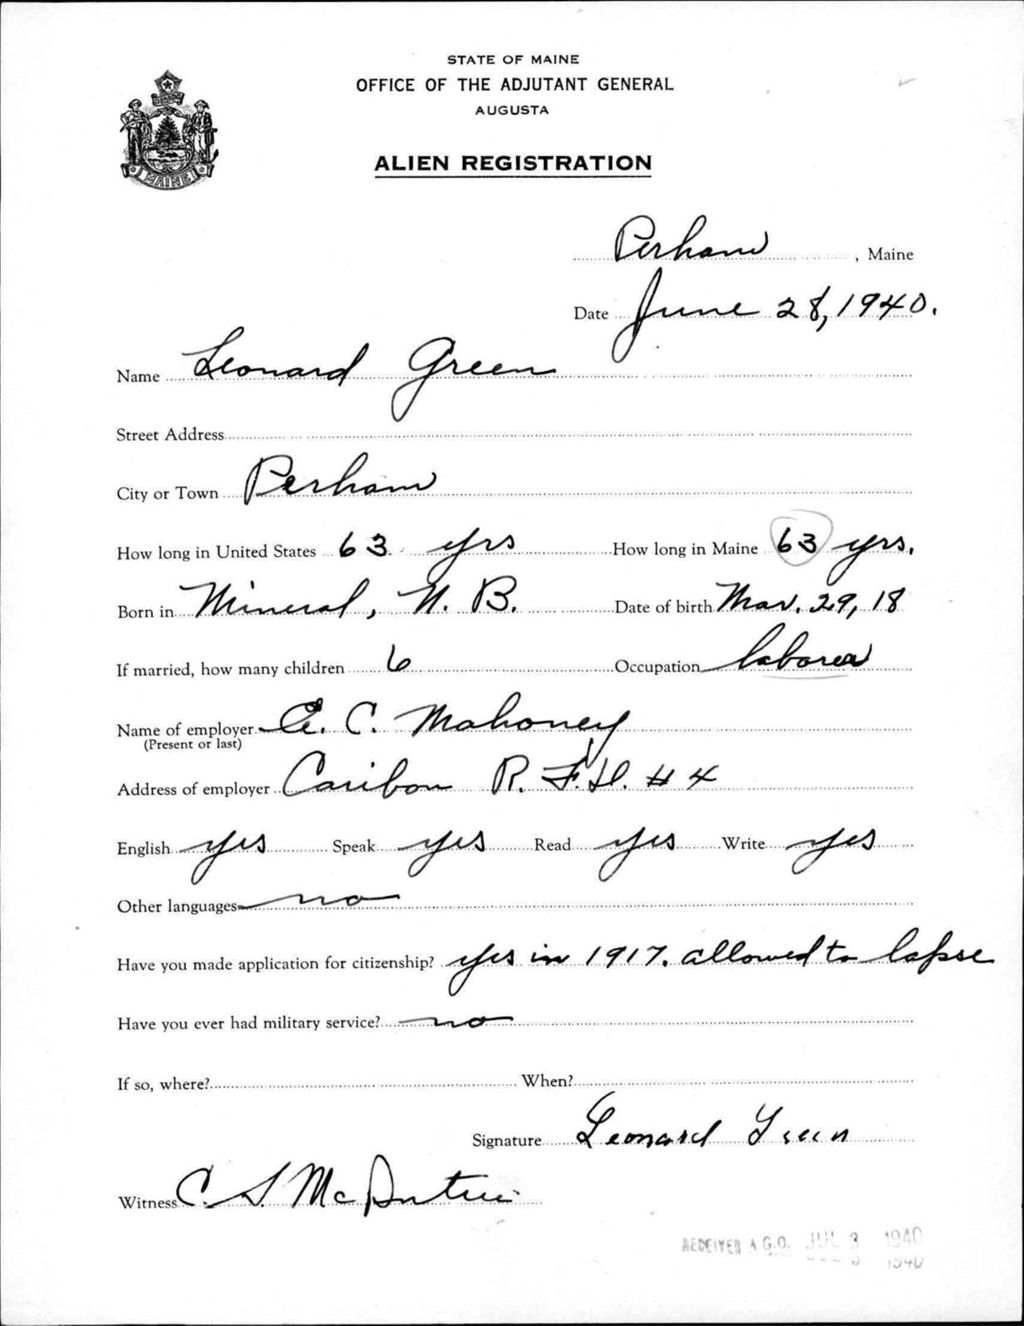 STATE OF MAINE
OFFICE OF THE ADJUTANT GENERAL
AUGUSTA
ALIEN REGISTRATION
MAINE
Perham, Maine
Date June 28, 1940.
Name Leonard Green
Street Address
City or Town Perham
How long in United States 63 yrs How long in Maine 63 yrs.
Born in Mineral, N. B. Date of birth Mar. 29, 18
If married, how many children 6 Occupation laborer
Name of employer E. C. Mahoney
(Present or last)
Address of employer Caribou R. F. D. #4
English yes Speak yes Read yes Write yes
Other languages no
Have you made application for citizenship? yes in 1917. allowed to lapse
Have you ever had military service? no
If so, where? When?
Signature Leonard Green
Witness C. S. McIntire
RECEIVED A.G.O. JUL 3 1940
1940